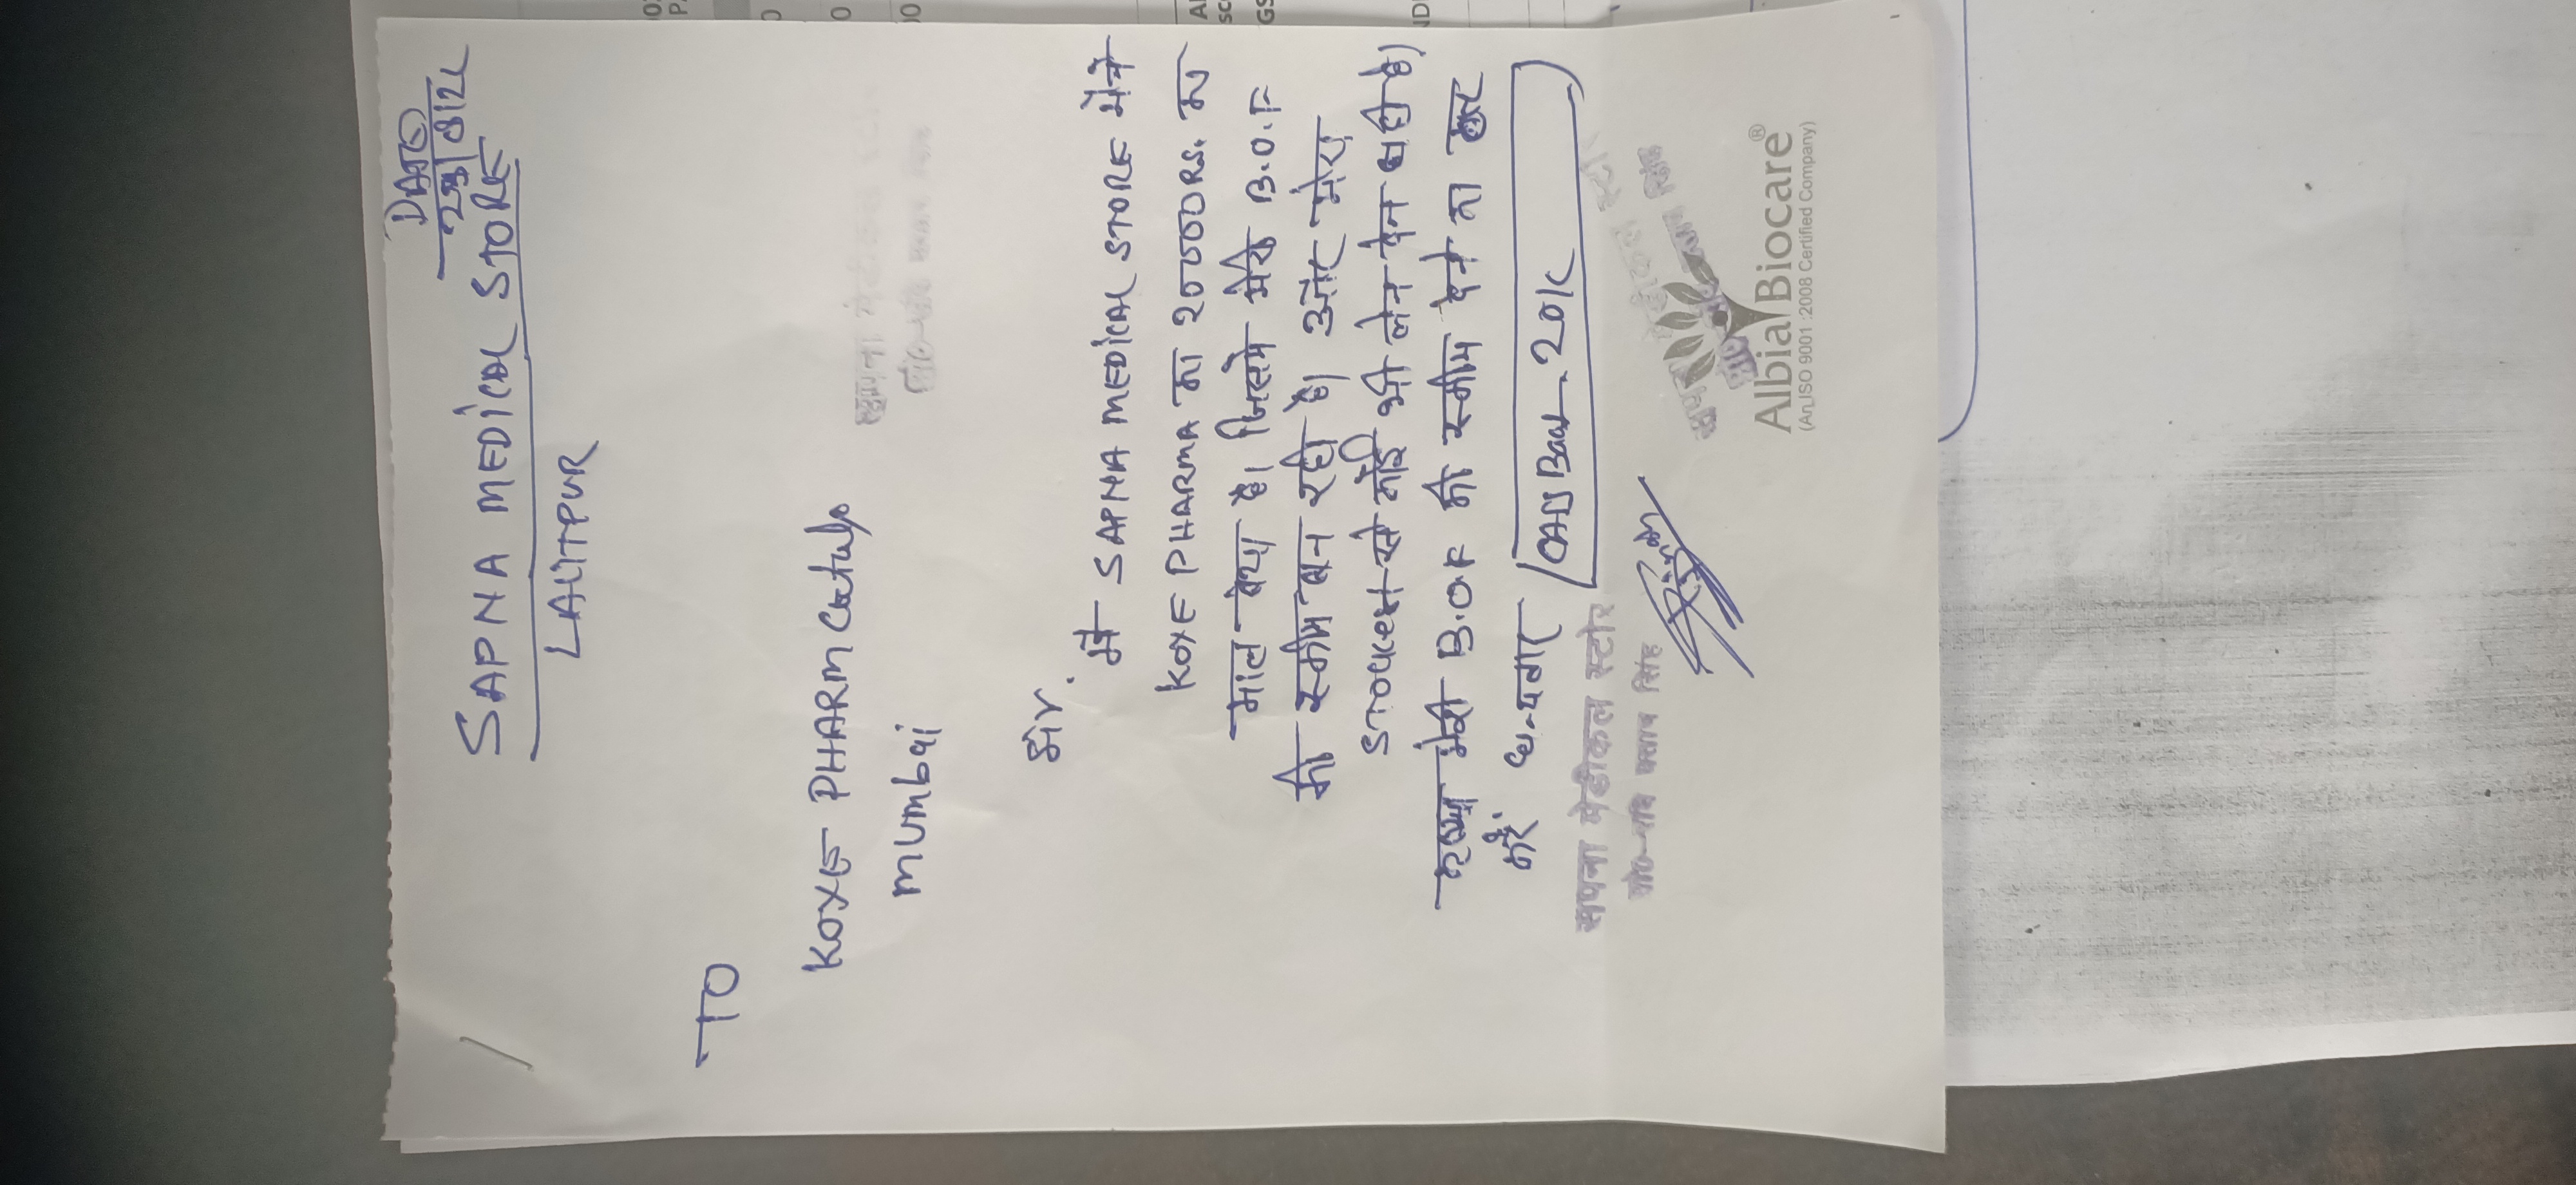 DATE
SAPNA MEDICAL STORE
LALITPUR
TO
KOXE PHARMCeutulp
MUMBAI
सेर.
में SAPNA MEDICAL STORE मेंने
KOXE PHARMA का 20000RS. का
माल बेचा है। जिसमे मेरी B.O.F
की स्कीम बन रही है। और मेरा
से कोई भी लेन देन नही है)
मेरी B.O.F की स्कीम देने का
करें धन्यवाद
20%
सपना मेडीकल स्टोर
प्रो०-रवि प्रताप सिंह
Albia Biocare®
(An ISO 9001 :2008 Certified Company)